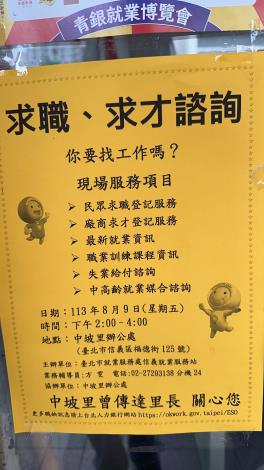 青銀就業博覽會
求職、求才諮詢
你要找工作嗎？
現場服務項目
➢ 民眾求職登記服務
➢ 廠商求才登記服務
➢ 最新就業資訊
➢ 職業訓練課程資訊
➢ 失業給付諮詢
➢ 中高齡就業媒合諮詢
日期：113年8月9日(星期五)
時間：下午2:00-4:00
地點：中坡里辦公處
（臺北市信義區福德街125號）
主辦單位：臺北市就業服務處信義就業服務站
業務輔導員：方 電話：02-27293138 分機24
協辦單位：中坡里辦公處
中坡里曾傳達里長 關心您
更多職缺訊息請上台北人力銀行網站https://okwork.gov.taipei/ESO